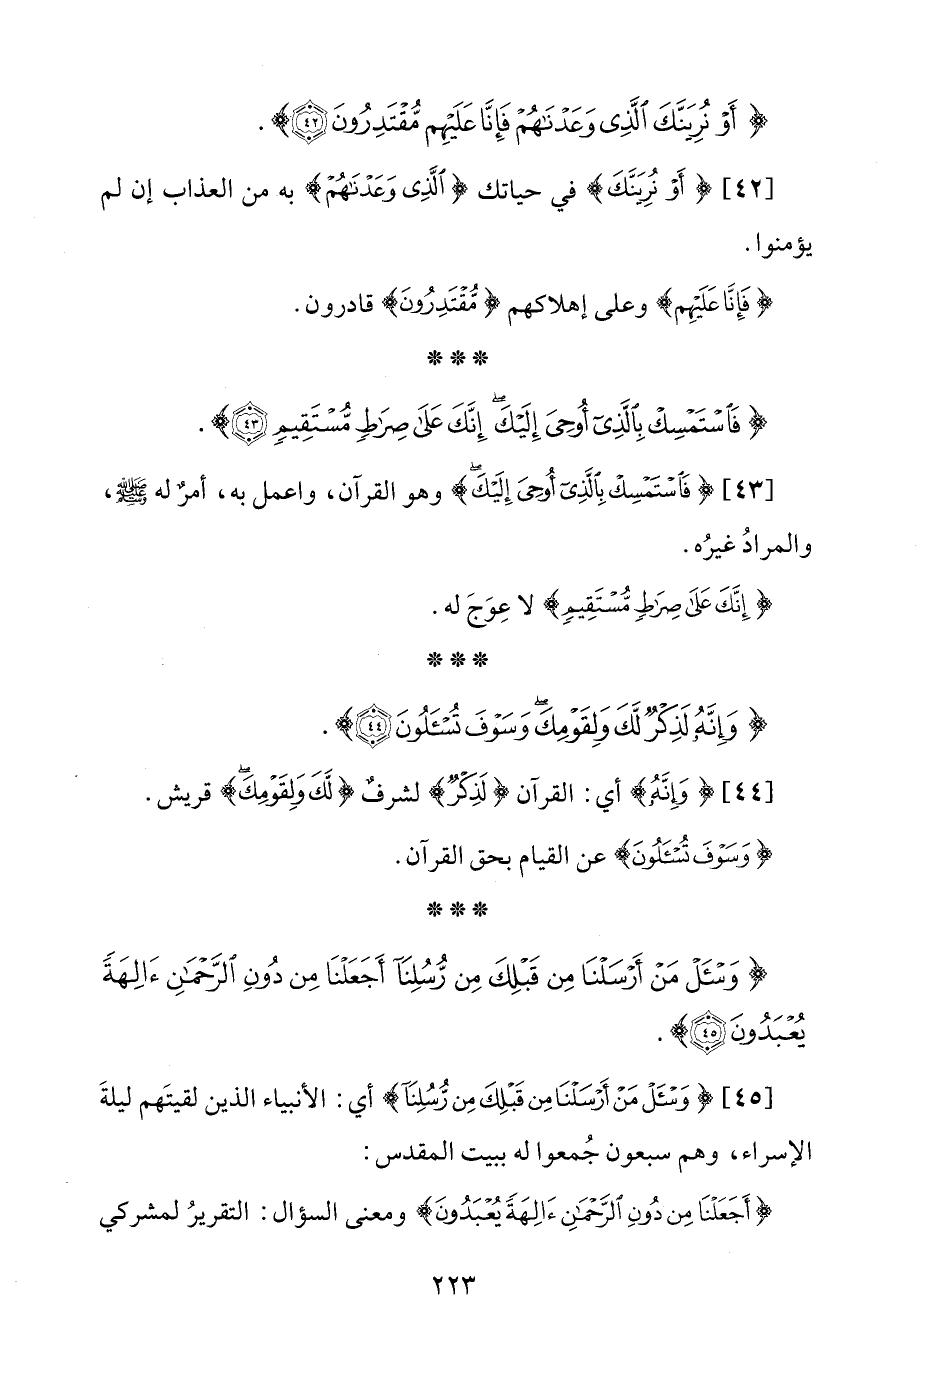 ﴿ أَوْ نُرِيَنَّكَ ٱلَّذِى وَعَدْنَٰهُمْ فَإِنَّا عَلَيْهِم مُّقْتَدِرُونَ ٤٢﴾ .
[٤٢] ﴿ أَوْ نُرِيَنَّكَ﴾ في حياتك ﴿ ٱلَّذِى وَعَدْنَٰهُمْ﴾ به من العذاب إن لم
يؤمنوا .
﴿ فَإِنَّا عَلَيْهِم﴾ وعلى إهلاكهم ﴿ مُّقْتَدِرُونَ﴾ قادرون .
* * *
﴿ فَٱسْتَمْسِكْ بِٱلَّذِىٓ أُوحِىَ إِلَيْكَ ۖ إِنَّكَ عَلَىٰ صِرَٰطٍ مُّسْتَقِيمٍ ٤٣﴾ .
[٤٣] ﴿ فَٱسْتَمْسِكْ بِٱلَّذِىٓ أُوحِىَ إِلَيْكَ ۖ﴾ وهو القرآن، واعمل به، أمرٌ له ﷺ،
والمرادُ غيرُه .
﴿ إِنَّكَ عَلَىٰ صِرَٰطٍ مُّسْتَقِيمٍ﴾ لا عِوَجَ له .
* * *
﴿ وَإِنَّهُۥ لَذِكْرٌ لَّكَ وَلِقَوْمِكَ ۖ وَسَوْفَ تُسْـَٔلُونَ ٤٤﴾ .
[٤٤] ﴿ وَإِنَّهُۥ﴾ أي: القرآن ﴿ لَذِكْرٌ﴾ لشرفٌ ﴿ لَّكَ وَلِقَوْمِكَ ۖ﴾ قريش .
﴿ وَسَوْفَ تُسْـَٔلُونَ﴾ عن القيام بحق القرآن .
* * *
﴿ وَسْـَٔلْ مَنْ أَرْسَلْنَا مِن قَبْلِكَ مِن رُّسُلِنَآ أَجَعَلْنَا مِن دُونِ ٱلرَّحْمَٰنِ ءَالِهَةً
يُعْبَدُونَ ٤٥﴾ .
[٤٥] ﴿ وَسْـَٔلْ مَنْ أَرْسَلْنَا مِن قَبْلِكَ مِن رُّسُلِنَآ﴾ أي: الأنبياء الذين لقيتَهم ليلةَ
الإسراء، وهم سبعون جُمعوا له ببيت المقدس:
﴿ أَجَعَلْنَا مِن دُونِ ٱلرَّحْمَٰنِ ءَالِهَةً يُعْبَدُونَ﴾ ومعنى السؤال: التقريرُ لمشركي
٢٢٣